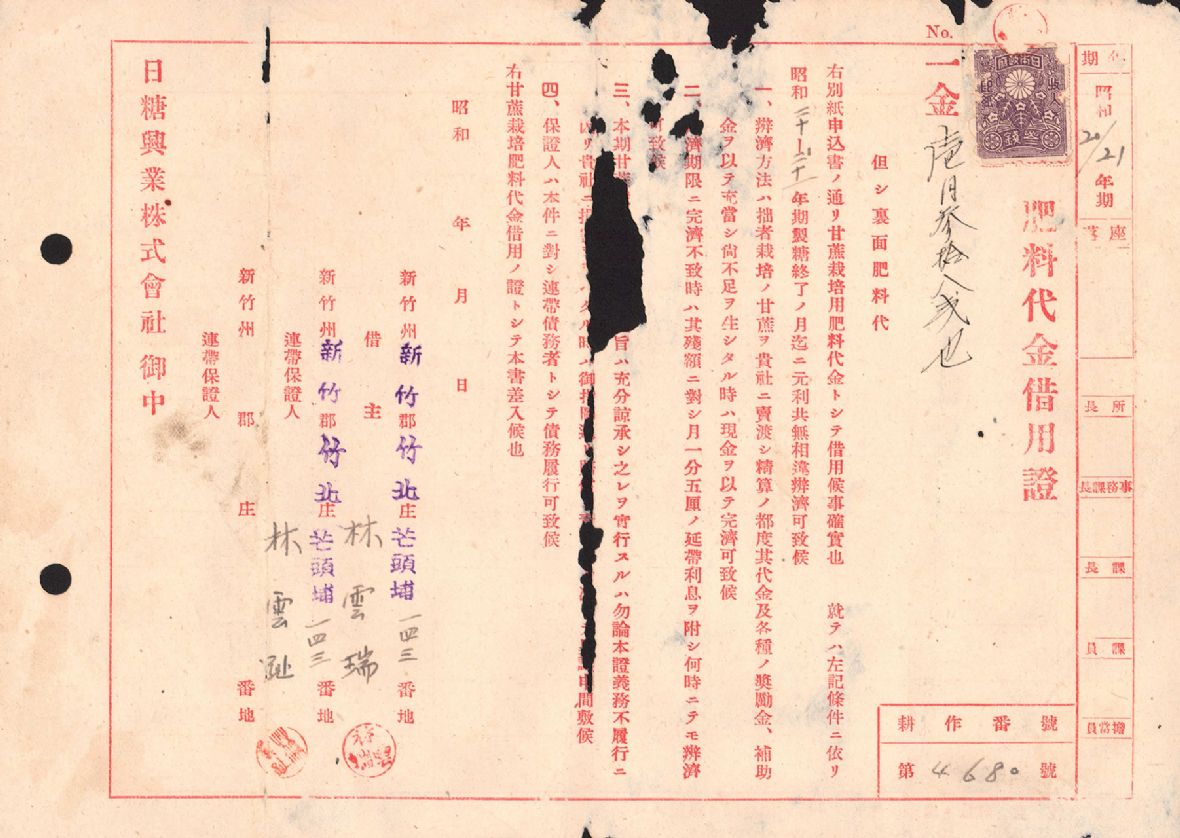 年期
昭和20/21年期
座落
所長
事務課長
課長
課員
擔當員
肥料代金借用證
耕作番號
第4680號
No.
一金壱百参拾八戔也
但シ裏面肥料代
右別紙申込書ノ通リ甘蔗栽培用肥料代金トシテ借用候事確實也 就テハ左記條件ニ依リ
昭和二十—二十一年期製糖終了ノ月迄ニ元利共無相違辨濟可致候
一、辨濟方法ハ拙者栽培ノ甘蔗ヲ貴社ニ賣渡シ精算ノ都度其代金及各種ノ奬勵金、補助
金ヲ以テ充當シ尙不足ヲ生シタル時ハ現金ヲ以テ完濟可致候
二、濟期限ニ完濟不致時ハ其殘額ニ對シ月一分五厘ノ延滯利息ヲ附シ何時ニテモ辨濟
可致候
三、本期甘蔗 旨ハ充分諒承シ之レヲ實行スルハ勿論本證義務不履行ニ
因リ貴社ニ 時ハ御 申間敷候
四、保證人ハ本件ニ對シ連帶債務者トシテ債務履行可致候
右甘蔗栽培肥料代金借用ノ證トシテ本書差入候也
昭和 年 月 日
新竹州新竹郡竹北庄芒頭埔一四三番地
借主 林雲瑞
新竹州新竹郡竹北庄芒頭埔一四三番地
連帶保證人 林雲趾
新竹州 郡 庄 番地
連帶保證人
日糖興業株式會社御中